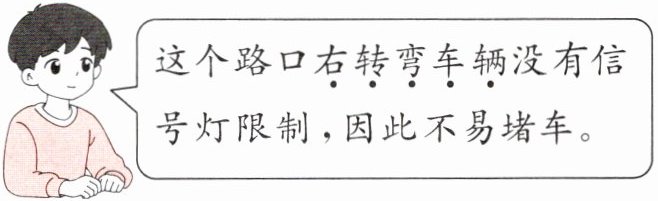 这个路口右转弯车辆没有信
号灯限制，因此不易堵车。